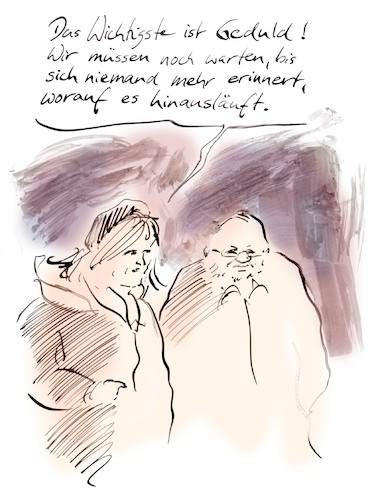 Das Wichtigste ist Geduld!
Wir müssen noch warten, bis
sich niemand mehr erinnert,
worauf es hinausläuft.